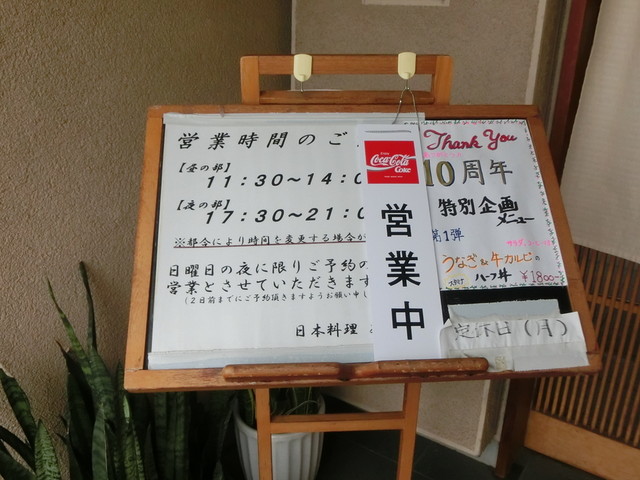 営業時間のご
【昼の部】
11：30～14：0
【夜の部】
17：30～21：0
※都合により時間を変更する場合が
日曜日の夜に限りご予約の
営業とさせていただきます
（２日前までにご予約頂きますようお願い申し
日本料理
Enjoy
Coca-Cola
Coke
営業中
Thank You
10周年
特別企画
メニュー
第1弾
うなぎ&牛カルビの
ハーフ丼
¥1800-
定休日（月）